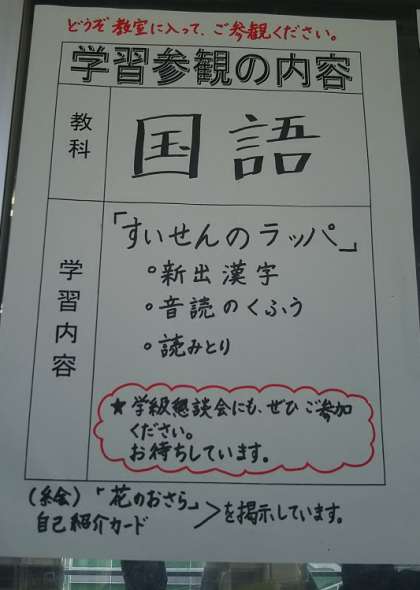 どうぞ教室に入って、ご参観ください。
学習参観の内容
教科
国語
学習内容
「すいせんのラッパ」
○新出漢字
○音読のくふう
○読みとり
★学級懇談会にも、ぜひご参加
ください。
お待ちしています。
(絵)「花のおさら」
自己紹介カード
>を掲示しています。